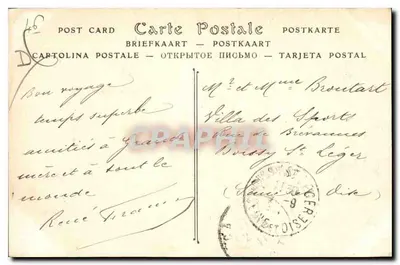 POST CARD Carte Postale POSTKARTE
BRIEFKAART — POSTKAART
CARTOLINA POSTALE — ОТКРЫТОЕ ПИСЬМО — TARJETA POSTAL
Bon voyage
temps superbe
amitiés à Grand
mère et à tout le
monde
René
Mr et Mme Broutart
Villa des Sports
Rue de Brévannes
Boissy St Léger
Seine et Oise